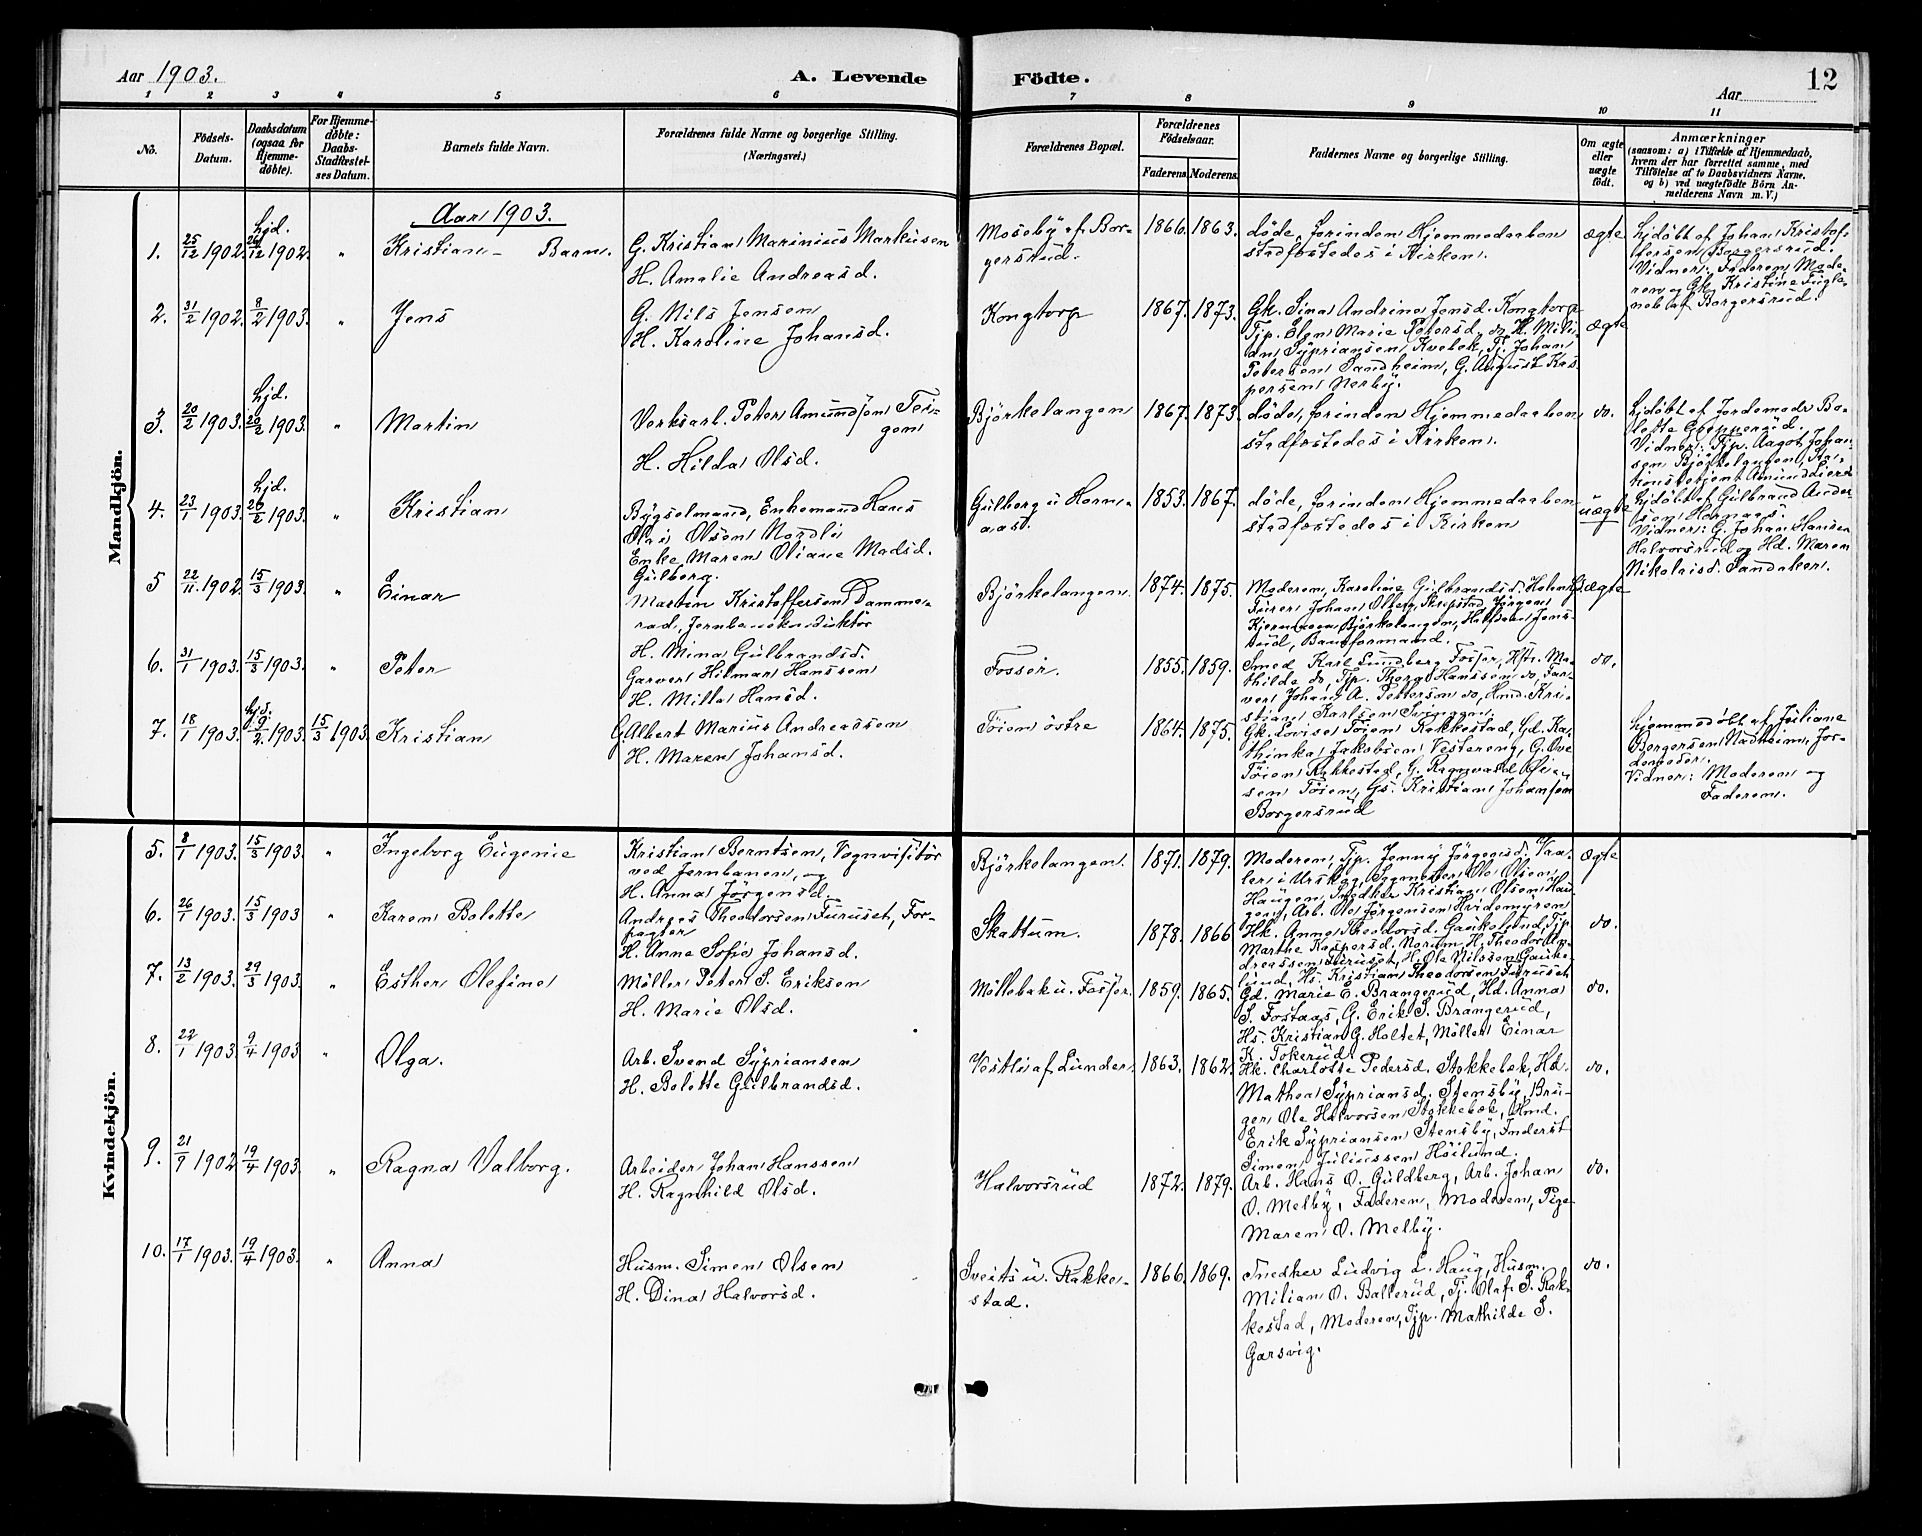 Aar 1903.
A. Levende Födte.
Aar
12
1 2 3 4 5 6 7 8 9 10 11
No.
Födsels-Datum.
Daabsdatum (ogsaa for Hjemme-döbte).
For Hjemme-döbte: Daabs-Stadfæstel-ses Datum.
Barnets fulde Navn.
Forældrenes fulde Navne og borgerlige Stilling.
(Næringsvei.)
Forældrenes Bopæl.
Forældrenes Födselsaar.
Faderens. Moderens.
Faddernes Navne og borgerlige Stilling.
Om ægte eller uægte födt.
Anmærkninger
(saasom: a) i Tilfælde af Hjemmedaab,
hvem der har forrettet samme, med
Tilföielse af to Daabsvidners Navne.
og b) ved uægtefödte Börn An-
melderens Navn m. V.)
Mandkjön.
Aar 1903.
1. 25/12 1902. hjd. 26/12 1902. " Kristian - Barn.
G. Kristian Marinius Markusen
H. Amalie Andreasd.
Moseby af Bor-
gersrud.
1866. 1863.
döde, forinden Hjemmedaaben
stadfæstedes i Kirken.
ægte
hjdöbt af Johan Kristof-
fersen Borgersrud.
Vidner: Faderen, Mode-
ren og Gk. Kristine Fugle-
neb af Borgersrud.
2. 31/2 1902. 8/2 1903. " Jens
G. Nils Jensen
H. Karoline Johansd.
Kongtorp
1867. 1873.
Gk. Sina Andrine Jensd. Kongtorp
Tjp. Elen Marie Petersd. do, H. Mili-
an Sypriansen Kvebæk, Tj. Johan
Petersen Sandheim, G. August Kas-
persen Nerby.
ægte
3. 20/2 1903. hjd. 20/2 1903. " Martin
Verksarb. Peter Amundsen Tei-
gen
H. Hilda Olsd.
Björkelangen
1867. 1873.
döde, forinden Hjemmedaaben
stadfæstedes i Kirken.
do.
hjdöbt af Jordemoder Bo-
lette
Vidner: Tjp. Aagot Johan-
sen Björkelangen, Sta-
tionsbetjent Amund Lier
4. 23/1 1903. hjd. 26/2 1903. " Kristian
Bygselmand, Enkemand Hans
Olai Olsen Nordli
Enke Maren Oliane Madsd.
Gulberg.
Gulberg u Horn-
aas.
1853. 1867.
döde, forinden Hjemmedaaben
stadfæstedes i Kirken
uægte
hjdöbt af Gulbrand Ander-
sen Hornaas.
Vidner: G. Johan Hansen
Halvorsrud og Hd. Maren
Nikolaisd. Sandaker.
5 22/11 1902. 15/3 1903. " Einar
Martin Kristoffersen Damme-
rud, Jernbanekonduktör
H. Mina Gulbrandsd.
Björkelangen.
1874. 1875.
Moderen, Karoline Gulbrandsd. Holen,
Furer Johan Olberg, Jörgen
Kjernaasen Björkelangen, Halfdan Jens-
rud, Baneformand.
ægte
6. 31/1 1903. 15/3 1903. " Peter
Garver Hilmar Hanssen
H. Milla Hansd.
Fosser.
1855. 1859.
Smed Karl Lundberg Fosser, Hstr. Ma-
thilde do, Tjp. Thora Hanssen do, Far-
ver Johan A. Pettersen do, Hmd. Kri-
stian Karlsen
do.
7. 18/1 1903. hjd. 9/2. 1903. 15/3 1903. Kristian
G. Albert Marius Andreassen
H. Maren Johansd.
Töien östre
1864. 1875.
Gk. Lovise Töien Rakkestad, Gd. Ka-
thinka Jakobsen Vestereng, G. Ove
Töien Rakkestad, G. Ragnvald Ovi-
sen Töien, Gs. Kristian Johansen
Borgersrud
hjemmedöbt af Juliane
Borgersen Nadheim, Jor-
demoder.
Vidner: Moderen og
Faderen.
Kvindekjön.
5. 8/1 1903. 15/3 1903. " Ingeborg Eugenie
Kristian Berntsen, Vognvisitör
ved Jernbanen, og
H. Anna Jörgensd.
Björkelangen.
1871. 1879.
Moderen, Tjp. Jenny Jörgensd. Vaa-
ler i Urskog, Ole Olsen
Haugen, Snedker Kristian Olsen Hau-
gen, Arb. Ole Jörgensen Hvidemyren
ægte
6. 26/1 1903. 15/3 1903 " Karen Bolette
Andreas Theodorsen Furuset, For-
pagter
H. Anne Sofie Johansd.
Skattum.
1878. 1866
Hk. Anne Theodorsd. Gaukelund, Tjp
Marthe Kaspersd. Norum, H. Theodor An-
dreassen Furuset, H. Ole Nilssen Gauke-
lund, Hs. Kristian Theodorsen Furuset
do.
7. 13/2 1903. 29/3 1903. " Esther Olefine
Möller Peter S. Eriksen
H. Marie Olsd.
Möllebak u. Fosser.
1859. 1865.
Gd. Marie E. Brangerud, Hd. Anna
S. Fostaas, G. Erik S. Brangerud,
Hs. Kristian G. Holtet, Möller Einar
K. Tokerud.
do.
8. 22/1 1903. 9/4 1903 " Olga.
Arb. Svend Sypriansen
H. Bolette Gulbrandsd.
Vestli af Lunder.
1863. 1862.
Hk. Charlotte Pedersd. Stokkebæk, Hd.
Mathea Sypriansd. Stensby, Bru-
ger Ole Halvorsen Stokkebæk, Hmd.
Erik Sypriansen Stensby, Inderst
Simen Juliussen Höilund.
do.
9. 21/9 1902 19/4 1903. " Ragna Valborg.
Arbeider Johan Hanssen
H. Ragnhild Olsd.
Halvorsrud
1872. 1879.
Arb. Hans O. Guldberg, Arb. Johan
O. Melby, Faderen, Moderen, Pige
Maren O. Melby.
do.
10. 17/1 1903. 19/4 1903. " Anna
Husm. Simen Olsen
H. Dina Halvorsd.
Sveits u. Rakke-
stad.
1866. 1869.
Snedker Ludvig L. Haug, Husm.
Milian O. Ballerud, Tj. Olaf S. Rak-
kestad, Moderen, Tjp. Mathilde S.
Garsvig.
do.